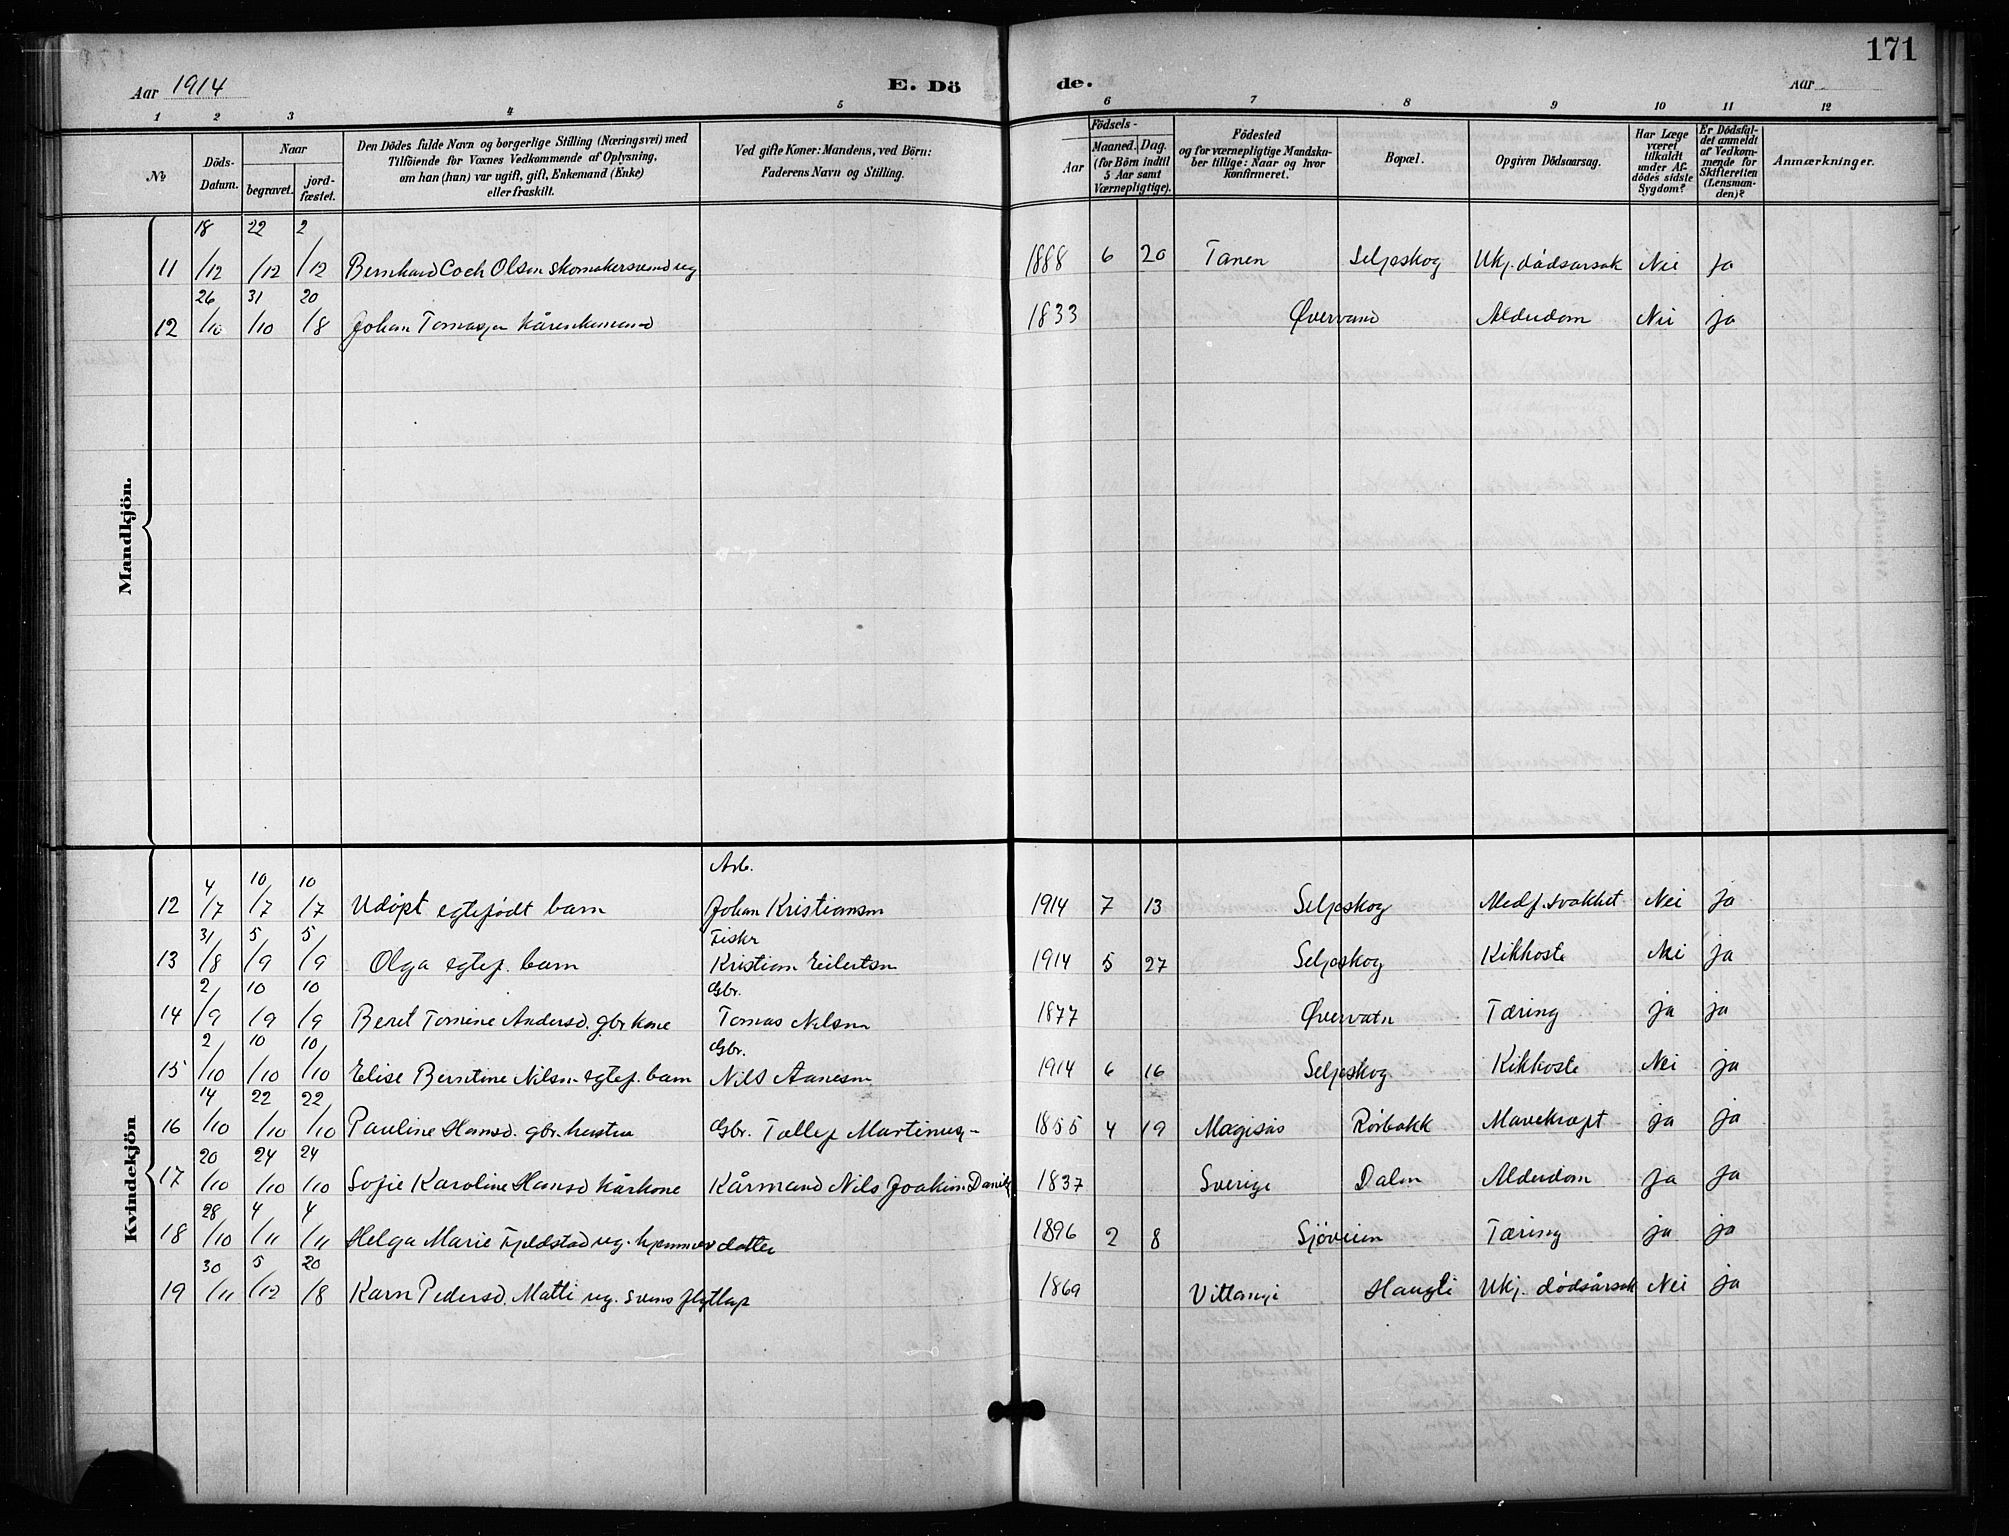 171
Aar 1914 E. Dö de. Aar
1 2 3 4 5 6 7 8 9 10 11 12
№ Döds-Datum. Naar begravet. jord-fæstet. Den Dödes fulde Navn og borgerlige Stilling (Næringsvei) med Tilföiende for Voxnes Vedkommende af Oplysning, om han (hun) var ugift, gift, Enkemand (Enke) eller fraskilt. Ved gifte Koner: Mandens, ved Börn: Faderens Navn og Stilling. Födsels- Aar Maaned. Dag. (for Börn indtil 5 Aar samt Værnepligtige). Födested og for værnepligtige Mandskaber tillige: Naar og hvor konfirmeret. Bopæl. Opgiven Dödsaarsag. Har Læge været tilkaldt under Afdödes sidste Sygdom? Er Dödsfaldet anmeldt af Vedkommende for Skifteretten (Lensmanden)? Anmærkninger.
Mandkjön.
11 18/12 22/12 2/12 Bernhard Coch Olsen skomakersvend ug 1888 6 20 Tanen Seljeskog Ukj. dødsarsak Nei Ja
12 26/10 31/10 20/8 Johan Tomasen kårenkemand 1833 Øvervand Alderdom Nei ja
Kvindekjön
Arb.
12 4/7 10/7 10/7 Udöpt egtefödt barn Johan Kristiansen 1914 7 13 Seljeskog Medf. svakhet Nei ja
Fiskr
13 31/8 5/9 5/9 Olga egtef. barn Kristian Eilertsn 1914 5 27 Seljeskog Kikhoste Nei ja
Gbr.
14 2/9 10/9 10/9 Beret Tomine Andersd. gbr kone Tomas Nilsen 1877 Øvervatn Tæring ja ja
Gbr.
15 2/10 10/10 10/10 Elise Berntine Nilsn egtef. barn Nils Aanesn 1914 6 16 Seljeskog Kikhoste Nei ja
16 14/10 22/10 22/10 Pauline Hansd. gbr. hustru Gbr. Tollef Martinus- 1855 4 19 Mægisas Rörbakk Mavekræft ja ja
17 20/10 24/10 24/10 Sofie Karoline Hansd kårkone Kårmand Nils Joakim Daniels 1837 Sverige Dalen Alderdom ja ja
18 28/10 4/11 4/11 Helga Marie Fjeldstad ug. hjemmev datter 1896 2 8 Sjöveien Tæring ja ja
19 30/11 5/12 20/8 Karn Pedersd. Matti ug. svensk flytlap 1869 Vittangi Haugli Ukj. dødsårsak Nei ja